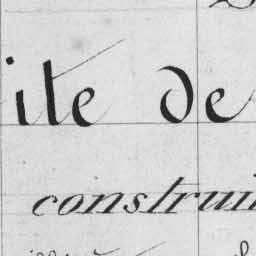 ite de
construi